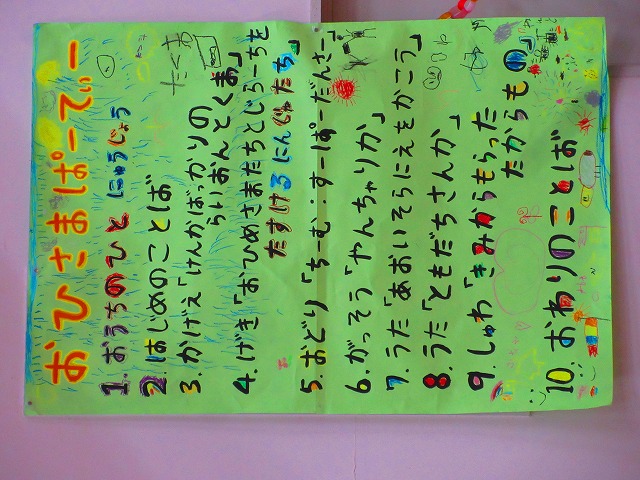 おひさまぱーてぃー
1.おうちのひと にゅうじょう
2.はじめのことば
3.かげえ「けんかばっかりの
らいおんとくま」
4.げき「おひめさまたちとじらーちを
たすけるにんじゃたち」
5.おどり「ちーむ:すーぱーだんさー」
6.がっそう「やんちゃりか」
7.うた「あおいそらにえをかこう」
8.うた「ともだちさんか」
9.しゅわ「きみからもらった
たからもの」
10.おわりのことば